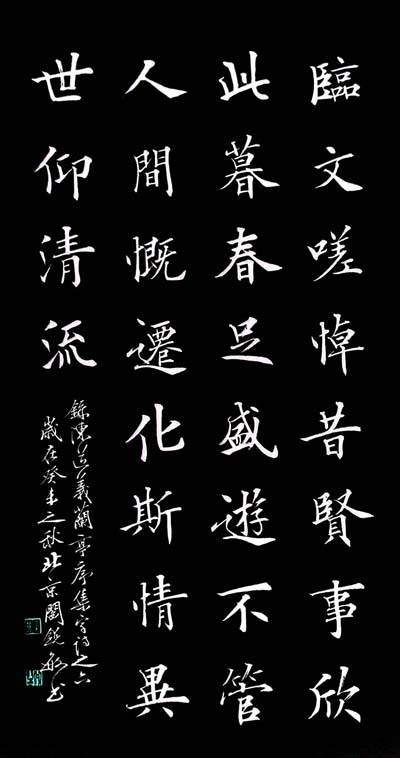 臨文嗟悼昔賢事欣
此暮春足盛遊不管
人間慨遷化斯情異
世仰清流
錄陳道義蘭亭序集字詩之六
歲在癸未之秋北京閻銳敏書